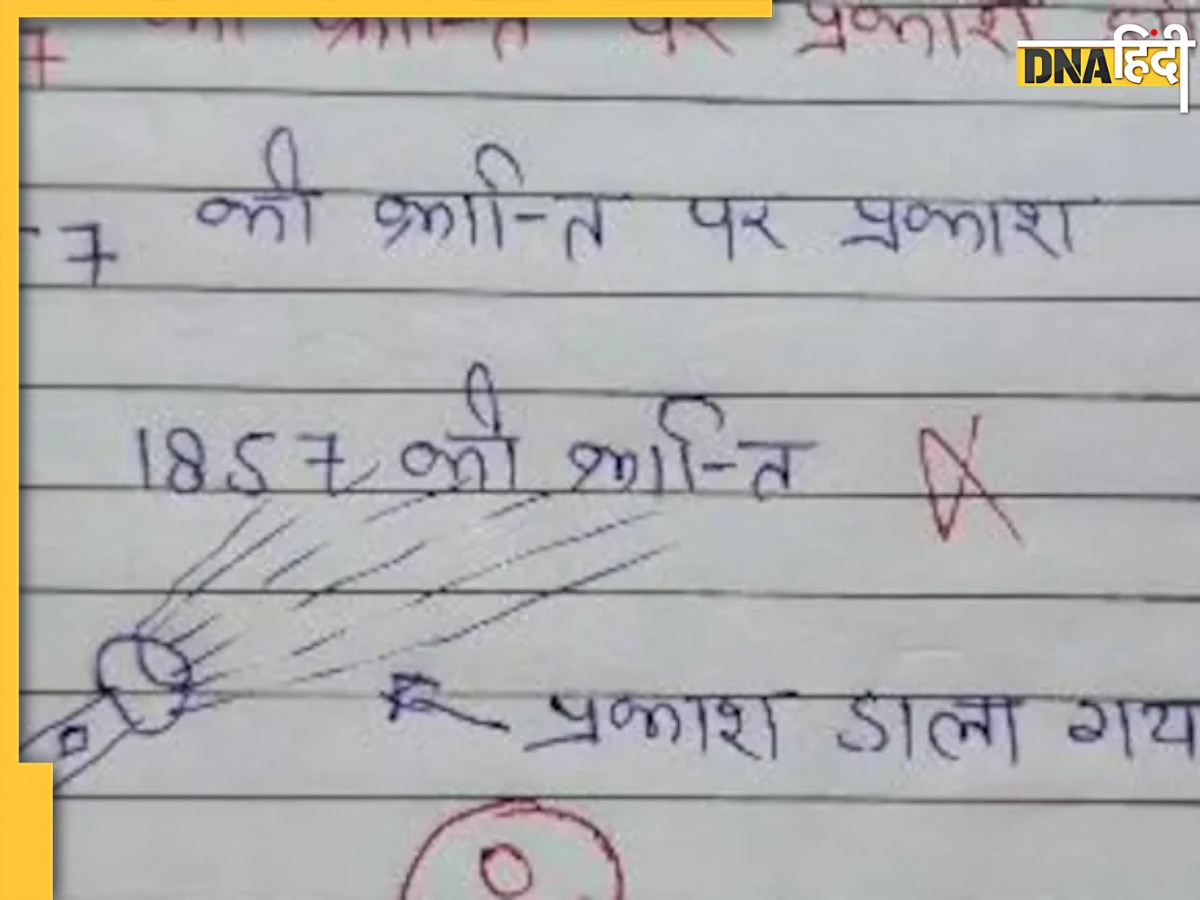 7 की क्रान्ति पर प्रकाश
DNA हिंदी
7 की क्रान्ति पर प्रकाश
1857 की क्रान्ति
प्रकाश डाला गय
0